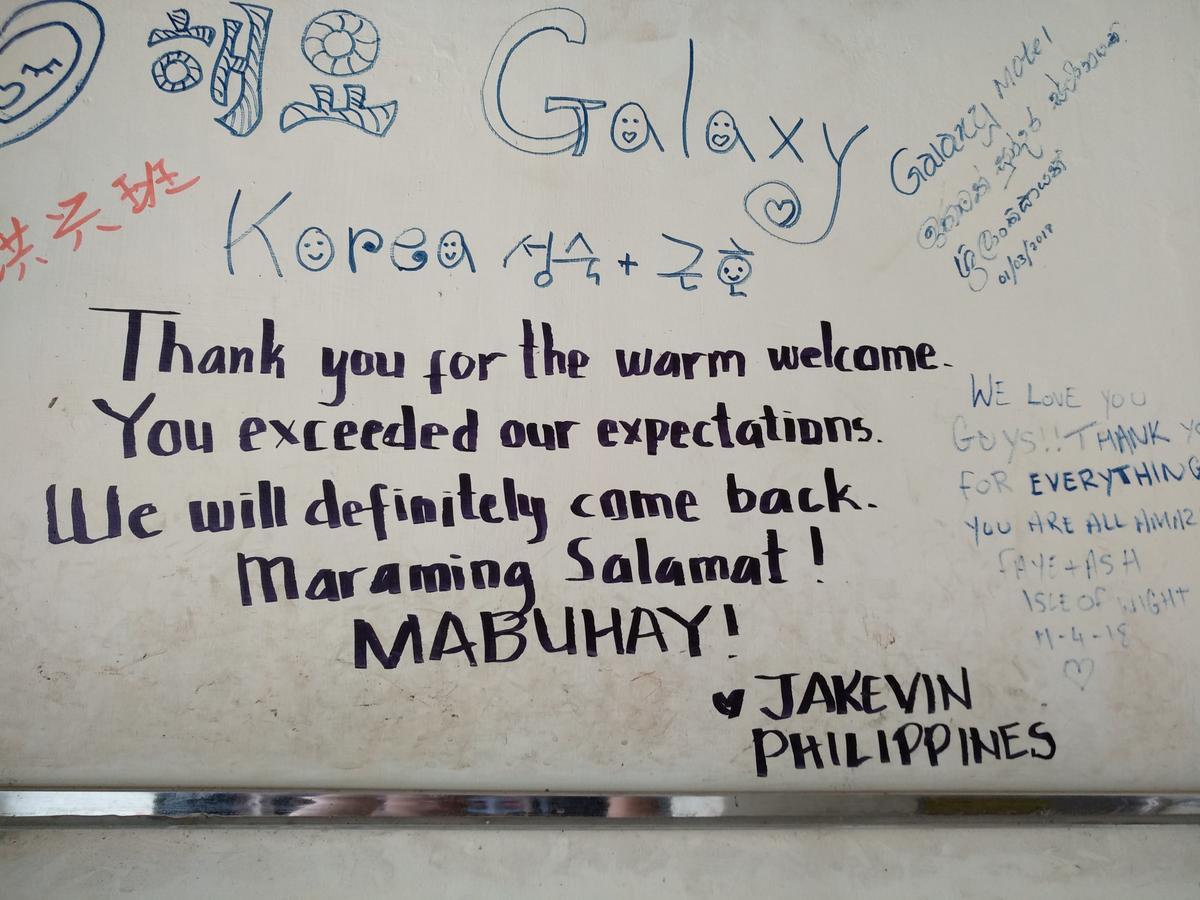 해요 Galaxy
Korea 성숙 + 근호
洪 班
Galaxy Motel
01/03/2018
Thank you for the warm welcome.
You exceeded our expectations.
We will definitely come back.
Maraming Salamat!
MABUHAY!
♥ JAKEVIN
PHILIPPINES
WE LOVE YOU
GUYS!! THANK YO
FOR EVERYTHING
YOU ARE ALL AMAZ
FAYE + ASH
ISLE OF WIGHT
11-4-18
♡